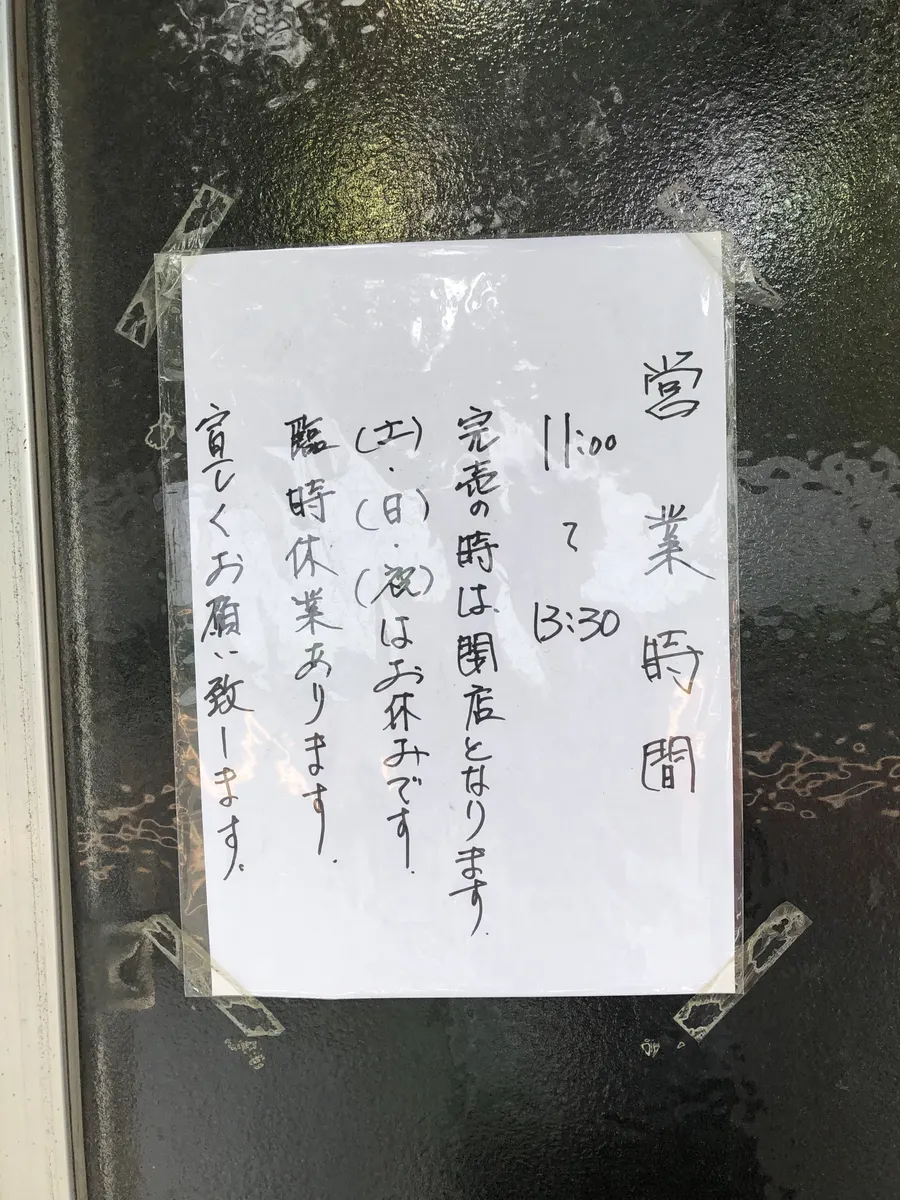 営業時間
11:00
〜
13:30
完売の時は、閉店となります.
(土)・(日)・(祝)はお休みです.
臨時休業あります.
宜しくお願い致します。